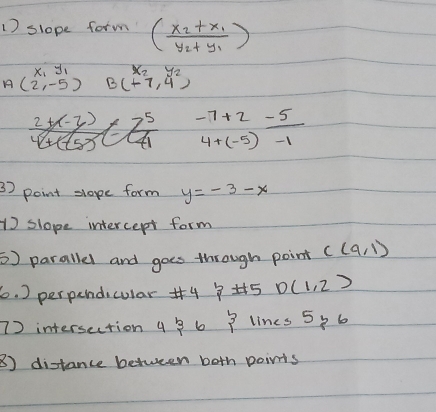 1) slope form (x₂ + x₁ / y₂ + y₁)
x₁ y₁ x₂ y₂
A (2,-5) B(-7,4)
-7+2 -5
4+(-5) -1
3) point slope form y = -3 - x
4) slope intercept form
5) parallel and goes through point C (9,1)
6.) perpendicular #4 & #5 D(1,2)
7) intersection 4 & 6 & lines 5 & 6
8) distance between both points